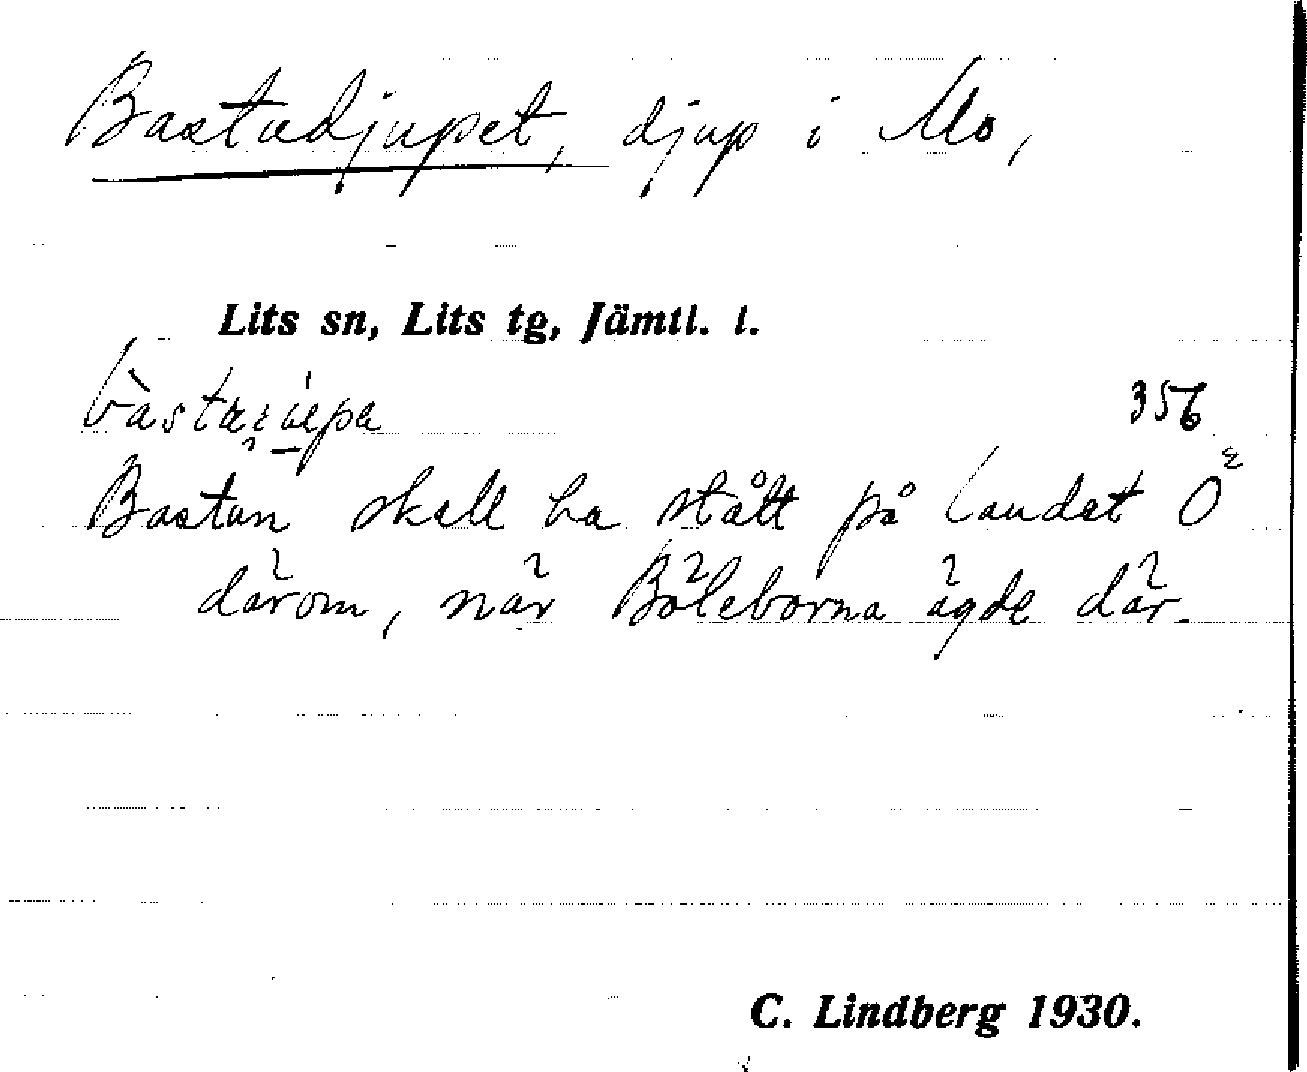 Bastudjupet, djup i Mo,
Lits sn, Lits tg, Jämtl. l.
356
Bastun skall ha stått på landet Ö
därom, när Böleborna ägde där.
C. Lindberg 1930.